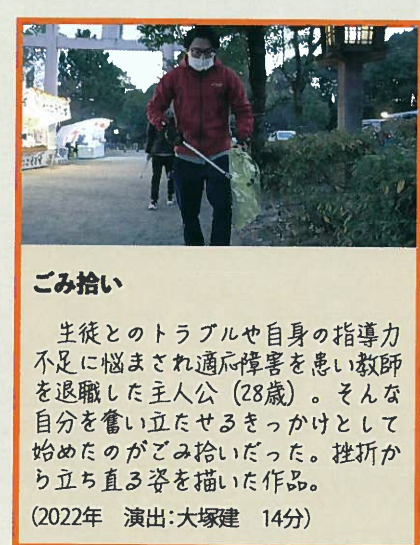 ごみ拾い
生徒とのトラブルや自身の指導力
不足に悩まされ適応障害を患い教師
を退職した主人公(28歳)。そんな
自分を奮い立たせるきっかけとして
始めたのがごみ拾いだった。挫折か
ら立ち直る姿を描いた作品。
(2022年 演出:大塚建 14分)